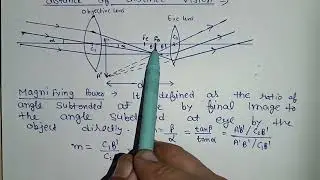 distance of distinct vision →
Objective lens
Eye lens
Fe Fo
C1
B' B
α
A"
Magnifying Power → It defined as the ratio of
angle subtended at eye by final image to
the angle subtended at eye by the
object directly. m = β/α = tanβ/tanα = A'B'/C2B' / A'B'/C1B'
m = C1B'